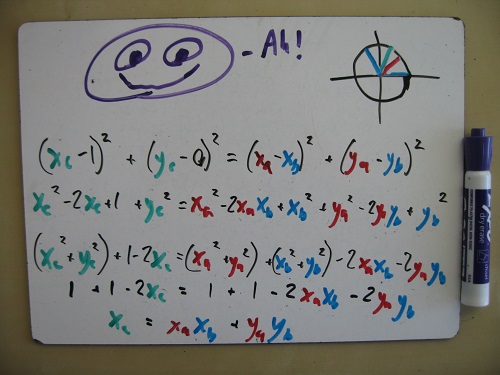 - Ah!
(x_c - 1)² + (y_c - 0)² = (x_a - x_b)² + (y_a - y_b)²
x_c² - 2x_c + 1 + y_c² = x_a² - 2x_a x_b + x_b² + y_a² - 2y_a y_b + y_b²
(x_c² + y_c²) + 1 - 2x_c = (x_a² + y_a²) + (x_b² + y_b²) - 2x_a x_b - 2y_a y_b
1 + 1 - 2x_c = 1 + 1 - 2x_a x_b - 2y_a y_b
x_c = x_a x_b + y_a y_b
dry erase